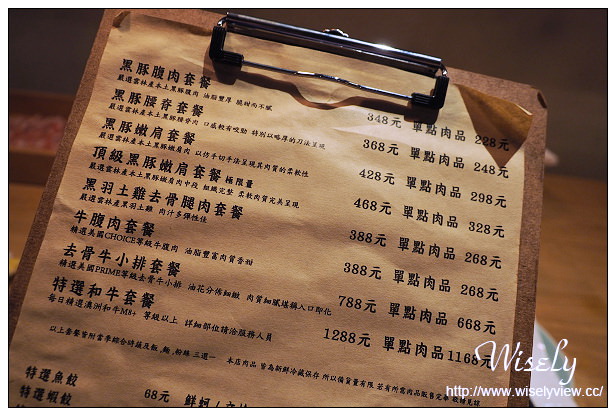 黑豚腹肉套餐 348元 單點肉品 228元
嚴選雲林產本土黑豚腹肉 油脂豐厚 脆甜而不膩
黑豚腰脊套餐 368元 單點肉品 248元
嚴選雲林產本土黑豚腰脊肉 口感較有咬勁 特別以略厚的刀法呈現
黑豚嫩肩套餐 428元 單點肉品 298元
嚴選雲林產本土黑豚嫩肩肉 以仿手切手法呈現其肉質的柔軟性
頂級黑豚嫩肩套餐 極限量 468元 單點肉品 328元
嚴選雲林產本土黑豚嫩肩肉中段 細緻完整 柔軟肉質完美呈現
黑羽土雞去骨腿肉套餐 388元 單點肉品 268元
嚴選雲林產黑羽土雞 肉汁多彈性佳
牛腹肉套餐 388元 單點肉品 268元
精選美國CHOICE等級牛腹肉 油脂豐富肉質香甜
去骨牛小排套餐 788元 單點肉品 668元
精選美國PRIME等級去骨牛小排 油花分佈細緻 肉質細膩堪稱入口即化
特選和牛套餐 1288元 單點肉品 1168元
每日精選澳洲和牛M8+ 等級以上 詳細部位請洽服務人員
以上套餐皆附當季綜合時蔬及飯,麵,粉絲 三選一 本店肉品 皆為新鮮冷藏保存 所以備貨量有限 若有所需肉品販售完畢
特選魚餃 68元 鮮蚵
特選蝦餃
Wisely
http://www.wiselyview.cc/